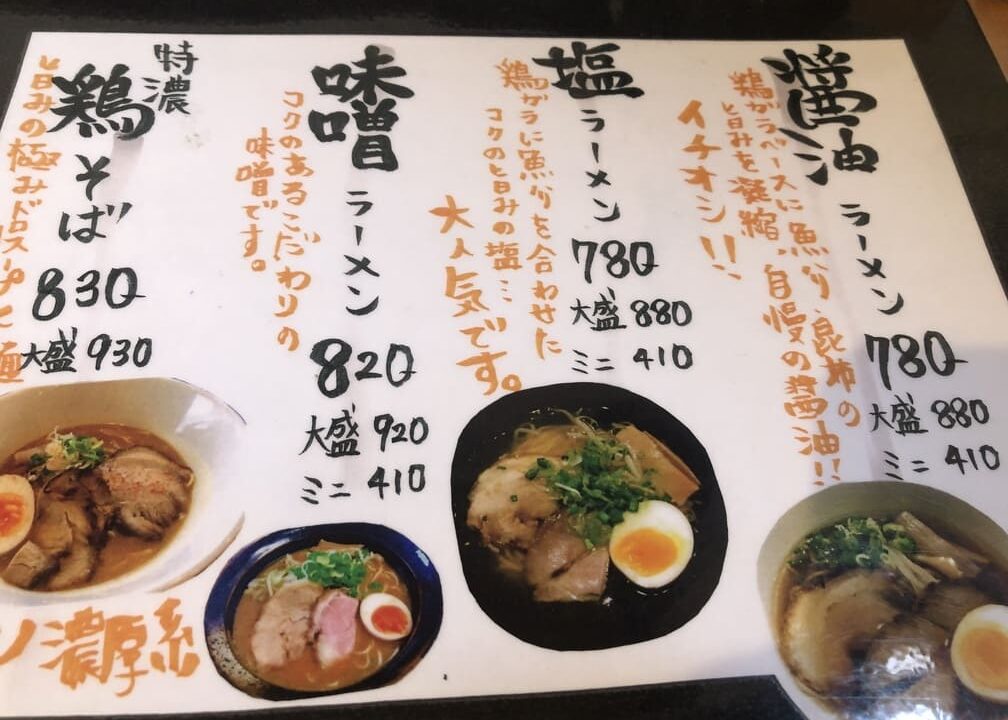 醤油
ラーメン
780
大盛 880
ミニ 410
鶏ガラベースに魚介、昆布の
旨みを凝縮、自慢の醤油!!
イチオシ!!
塩
ラーメン
780
大盛 880
ミニ 410
鶏ガラに魚介を合わせた
コクの旨みの塩…
大人気です。
味噌
ラーメン
820
大盛 920
ミニ 410
コクのあるこだわりの
味噌です。
特濃
鶏そば
830
大盛 930
旨みの極みドロスープと麺
濃厚系